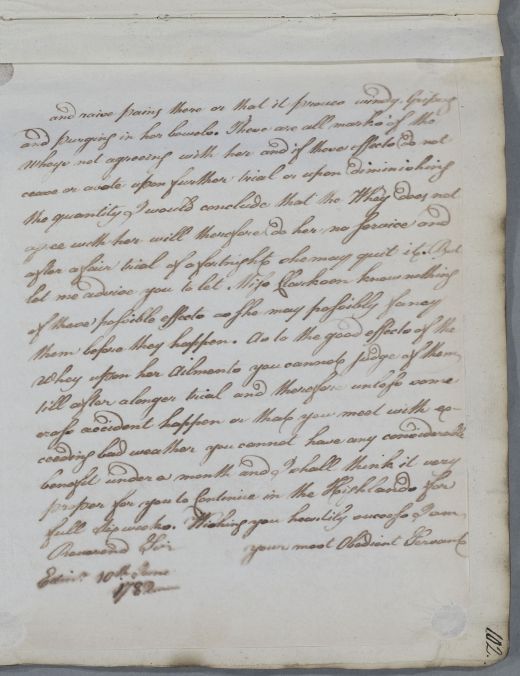 and raise pains there or that it proves windy, Griping
and purging in her bowels. These are all marks of the
Wheys not agreeing with her and if these effects do not
cease or abate upon further trial or upon diminishing
the quantity, I would conclude that the Whey does not
agree with her will therefore do her no service and
after a fair trial of a fortnight she may quit it. But
let me advise you to let Miss Clarkson know nothing
of these possible effects as she may possibly fancy
them before they happen. As to the good effects of the
Whey upon her Ailments you cannot judge of them
till after a longer trial and therefore unless some
cross accident happen or that you meet with ex-
ceeding bad weather you cannot have any considerable
benefit under a month and I shall think it very
proper for you to Continue in the Highlands for
full six weeks. Wishing you heartily success I am
Reverend Sir your most Obedient Servant
Edinr. 10th June
1782
102.